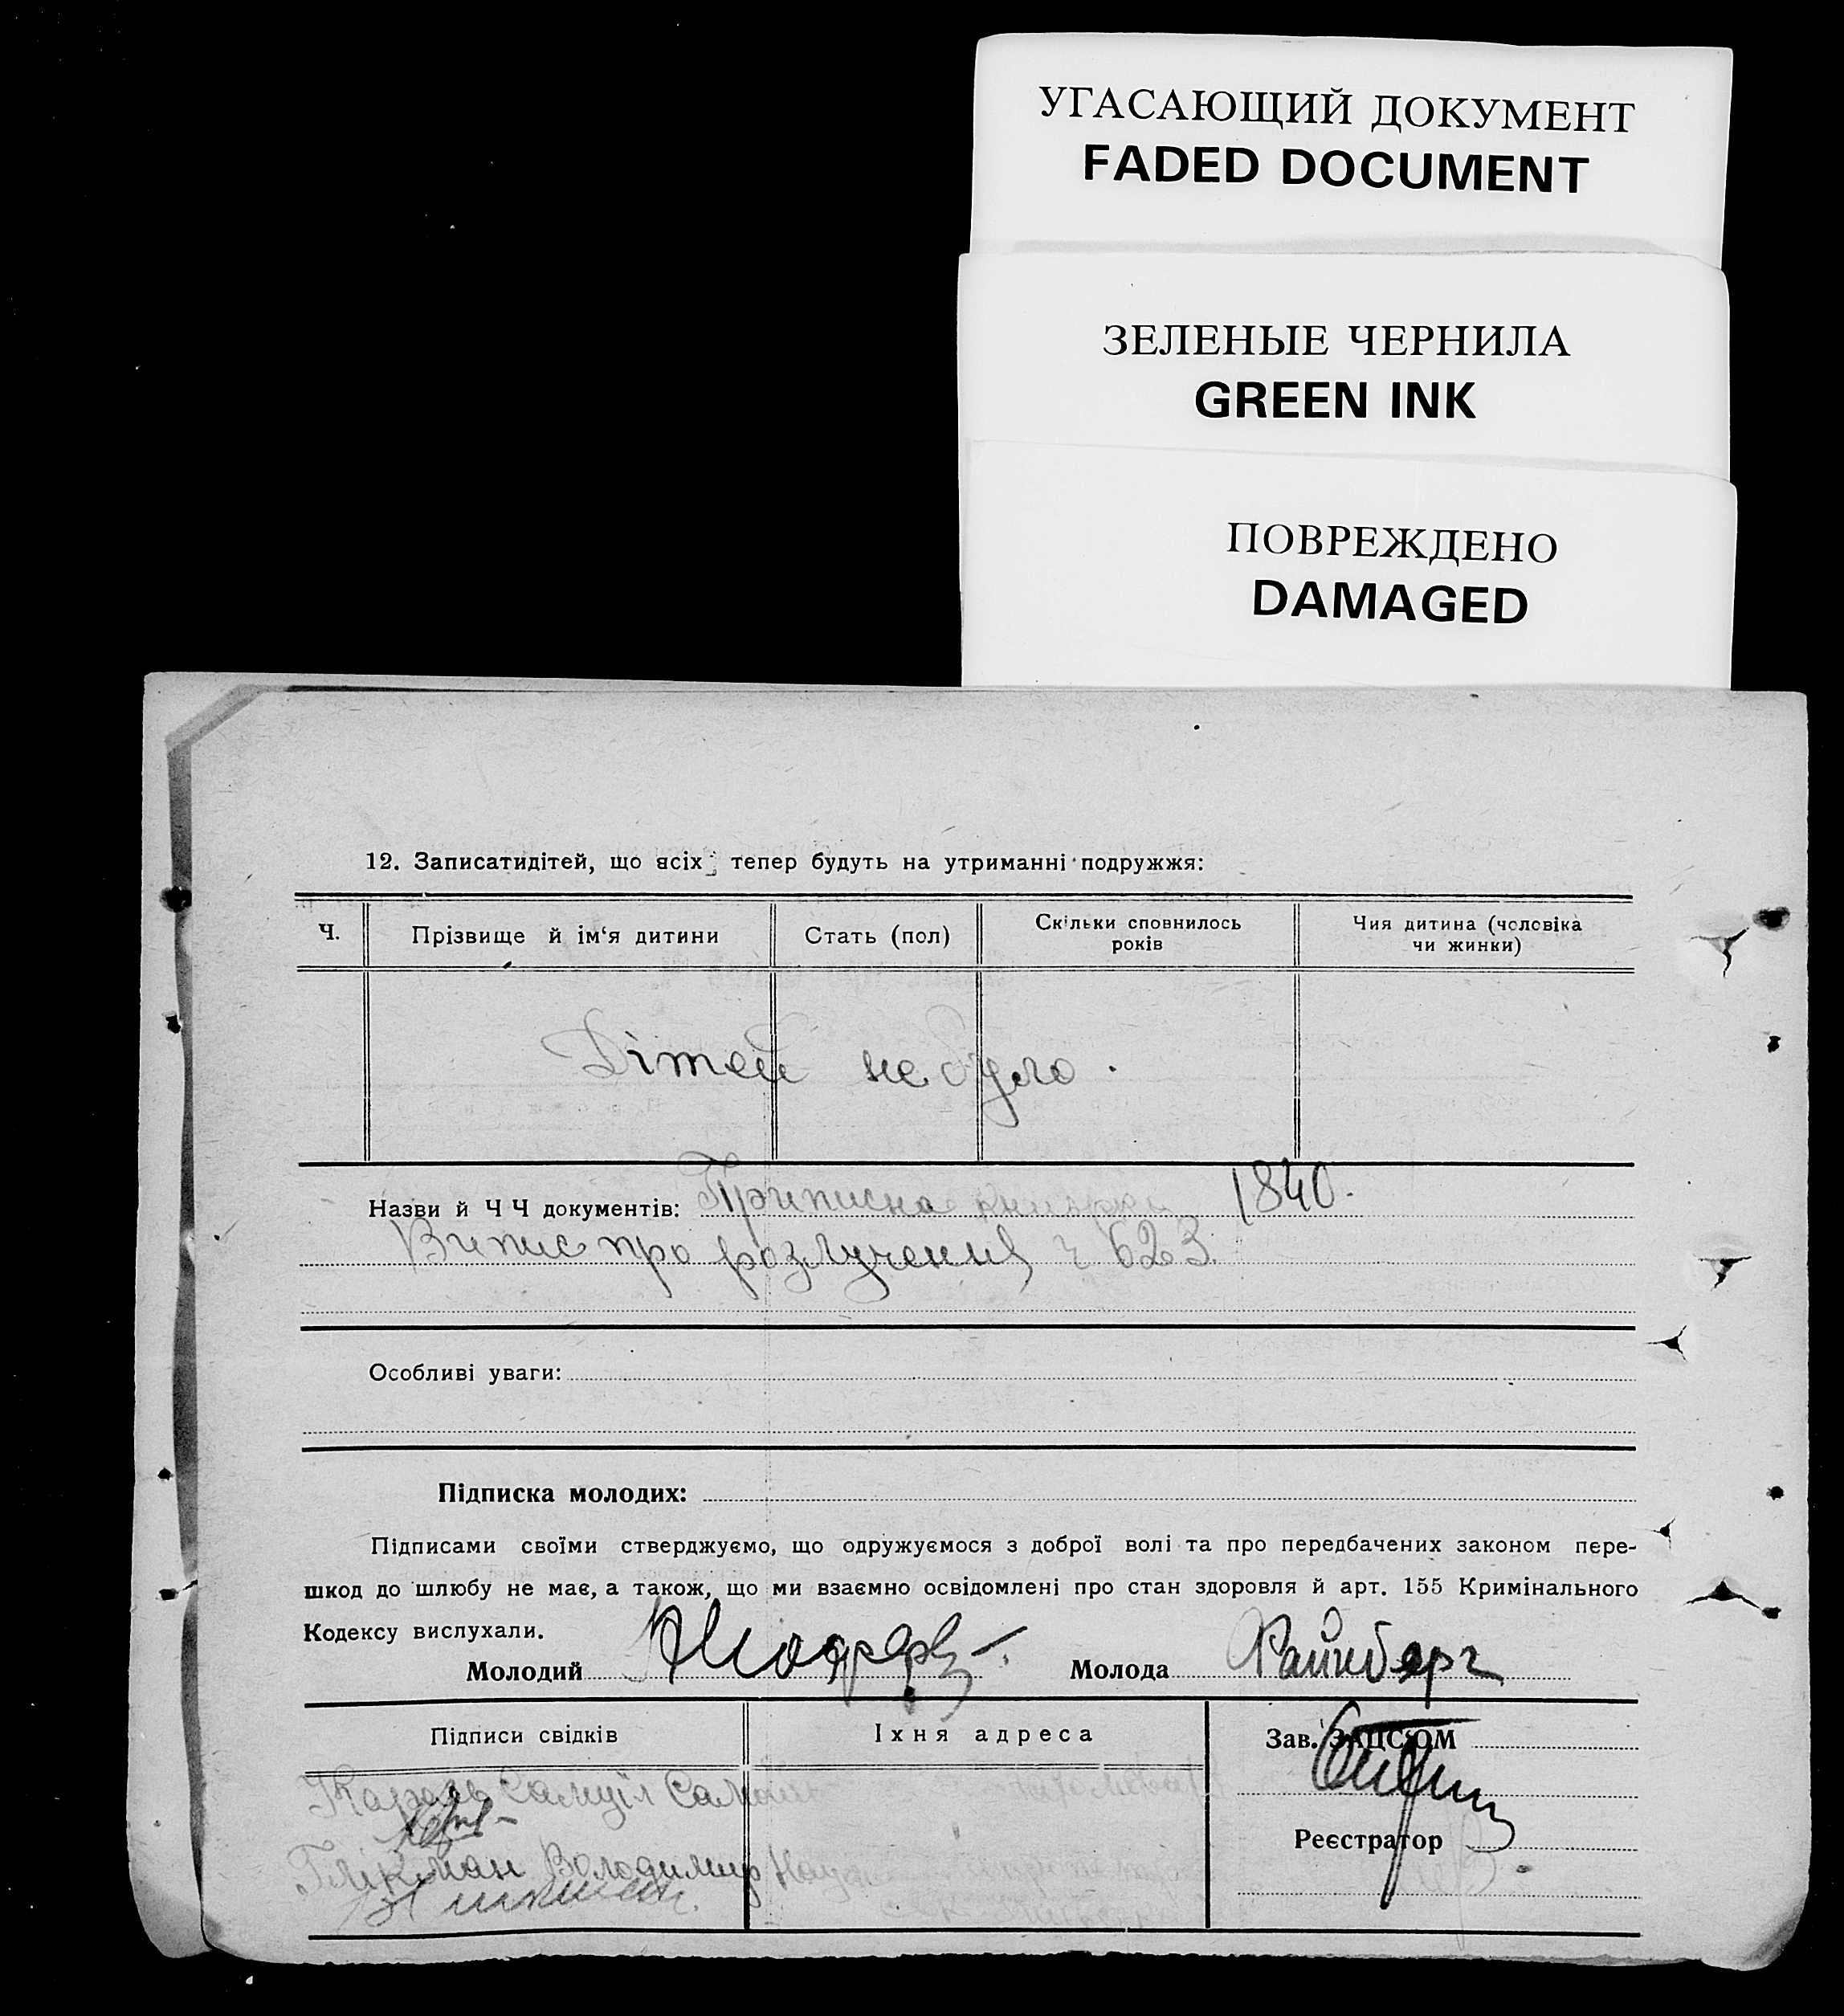 УГАСАЮЩИЙ ДОКУМЕНТ
FADED DOCUMENT
ЗЕЛЕНЫЕ ЧЕРНИЛА
GREEN INK
ПОВРЕЖДЕНО
DAMAGED
12. Записатидітей, що всіх тепер будуть на утриманні подружжя:
Ч.
Прізвище й ім‘я дитини
Стать (пол)
Скільки сповнилось
років
Чия дитина (чоловіка
чи жинки)
Дітей не було.
Назви й Ч Ч документів: Приписна книжка 1840.
Випис про розлучення ч 623.
Особливі уваги:
Підписка молодих:
Підписами своїми стверджуємо, що одружуємося з доброї волі та про передбачених законом пере-
шкод до шлюбу не має, а також, що ми взаємно освідомлені про стан здоровля й арт. 155 Кримінального
Кодексу вислухали.
Молодий
Молода Файнберг
Підписи свідків
Їхня адреса
Зав. ЗАЦС‘ОМ
Самуїл
Глікман Володимир
Реєстратор